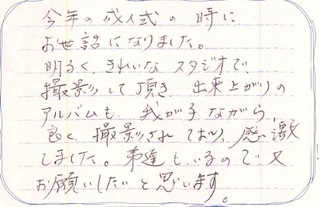 今年の成人式の時に
お世話になりました。
明るく、きれいなスタジオで、
撮影して頂き、出来上がりの
アルバムも、我が子ながら、
良く、撮影されており、感激
しました。弟達もいるので又
お願いしたいと思います。